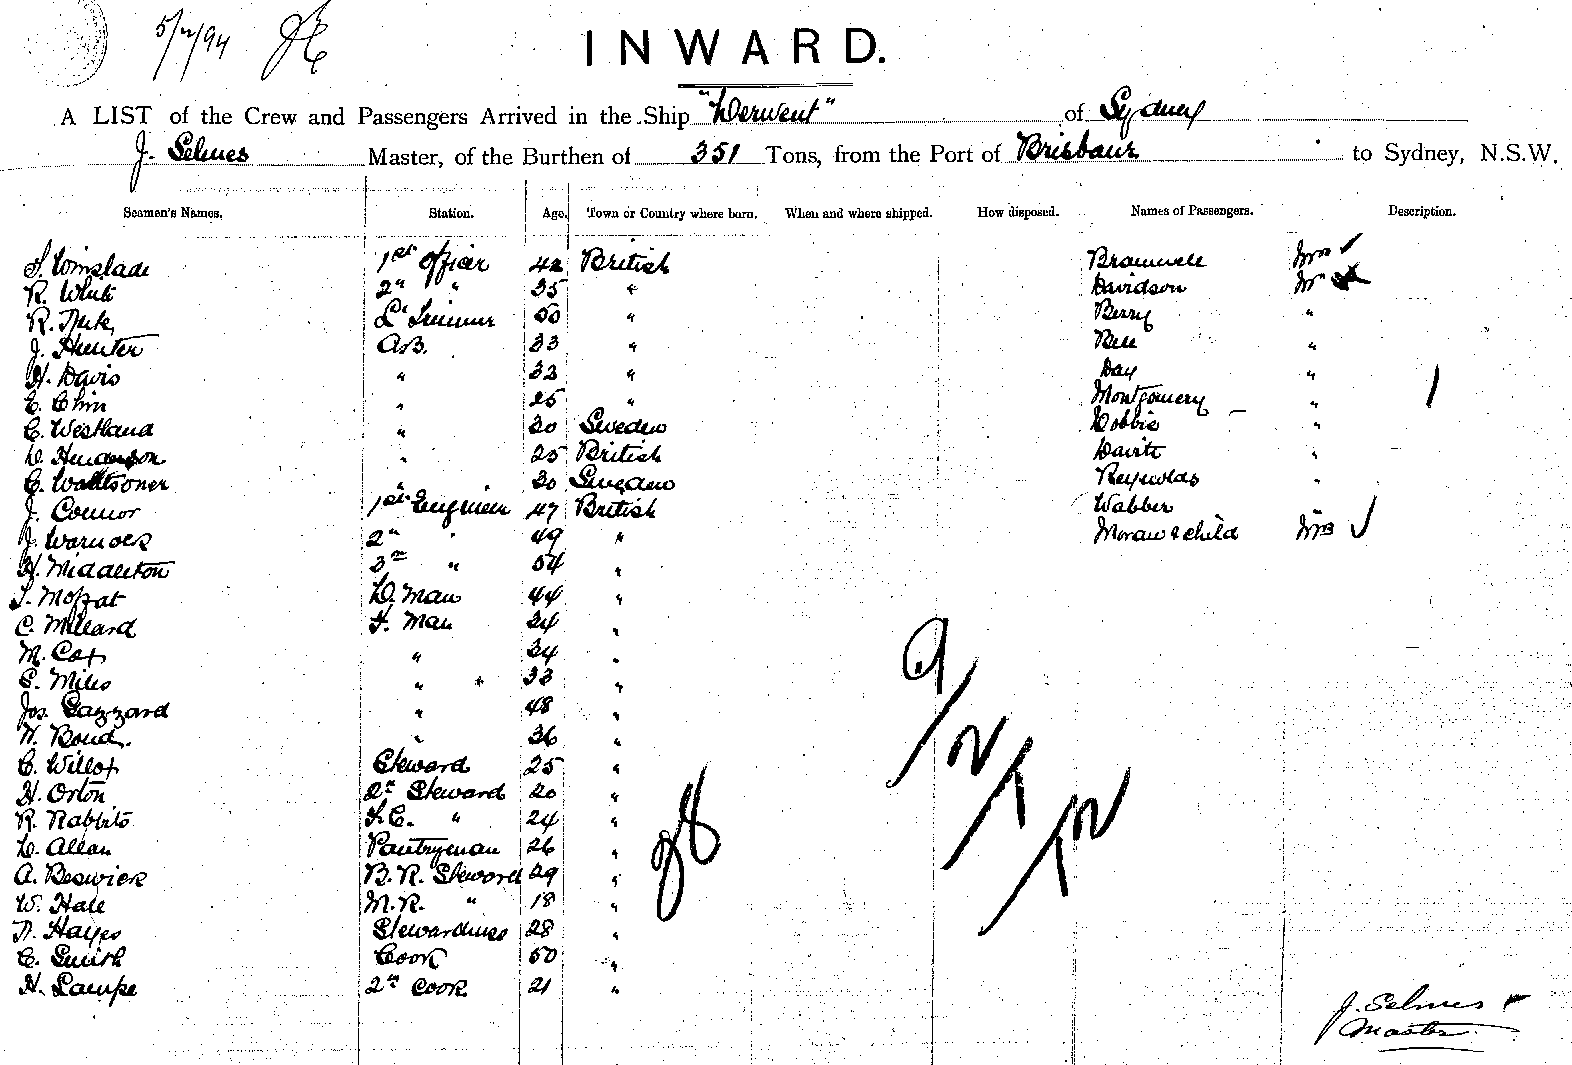 5/2/94
INWARD.
A LIST of the Crew and Passengers Arrived in the Ship "Derwent" of Sydney
J. Selmes Master, of the Burthen of 351 Tons, from the Port of Brisbane to Sydney, N.S.W.
Seamen's Names. Station. Age. Town or Country where born. When and where shipped. How disposed. Names of Passengers. Description.
1st Officer 42 British Bramwell Mrs
R. White 2nd " 35 " Davidson Mr
R. 50 " Berry "
J. Hunter A.B. 33 " Bell "
H. Davis " 32 " Day " 1
" 25 " Montgomery "
C. Westland " 30 Sweden "
D. Henderson " 25 British "
30 Sweden Reynolds "
J. Connor 1st Engineer 47 British Wabber
J. Warnock 2nd " 49 " Moran & child Mrs
H. Middleton 3rd " 54 "
Moffat D. Man 44 "
C. Millard F. Man 24 "
M. Cox " 34 "
Miles " 33 "
Jos. Gazzard " 48 "
W. Bond. " 36 "
C. Willox Steward 25 "
H. Orton 2nd Steward 20 "
R. Rabbits " 24 "
D. Allan Pantryman 26 "
A. Beswick B.R. Steward 29 "
W. Hale M.R. " 18 "
Hayes Stewardess 28 "
C. Smith Cook 50 "
H. Lampe 2nd Cook 21 "
28
9/2/12
J. Selmes
Master